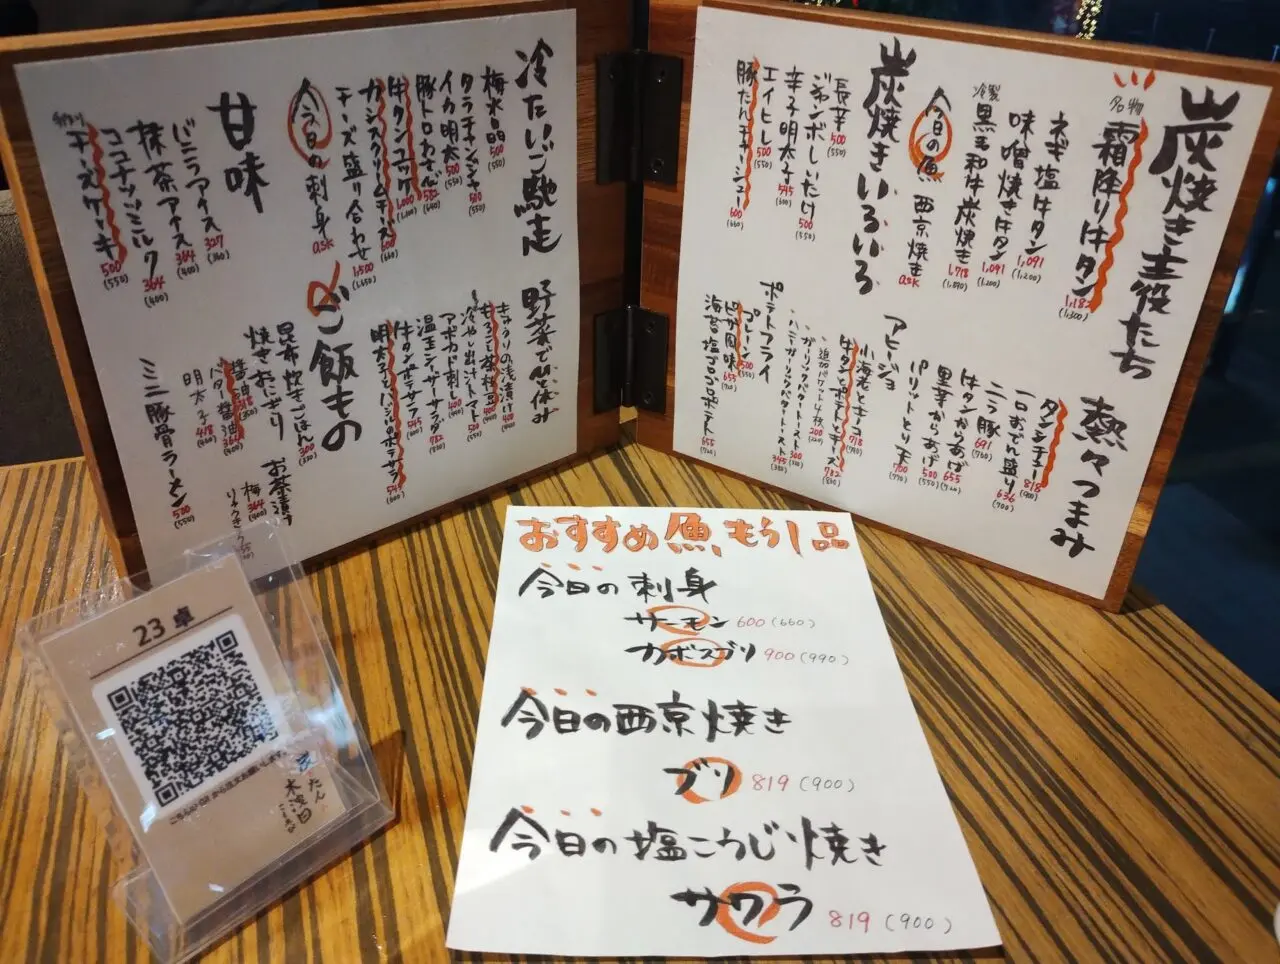 炭焼き主役たち
名物
霜降り牛タン 1,182 (1,300)
ネギ塩牛タン 1,091 (1,200)
味噌焼き牛タン 1,091 (1,200)
黒毛和牛炭焼き 1,718 (1,890)
今日の魚 西京焼き ask
炭焼きいろいろ
長芋 500 (550)
ジャンボしいたけ 500 (550)
辛子明太子 545 (600)
エイヒレ 500 (550)
豚たんチャーシュー 600 (660)
熱々つまみ
タンシチュー 818 (900)
一口おでん盛り 636 (700)
ニラ豚 691 (760)
牛タンからあげ 655 (720)
里芋からあげ 500 (550)
パリットとり天 700 (770)
アヒージョ
小海老ときのこ 718 (790)
牛タンとポテトとチーズ 782 (860)
追加バケット4枚 200 (220)
ガーリックバタートースト 300 (330)
ハニーガーリックバタートースト 345 (380)
ポテトフライ
プレーン 500 (550)
ピザ風味 655 (720)
海苔塩ゴロゴロポテト 655 (720)
冷たいご馳走
梅水晶 500 (550)
タラチャンジャ 500 (550)
イカ明太 500 (550)
豚トロわさび 582 (640)
牛タンユッケ 1,000 (1,100)
カシスクリームチーズ 600 (660)
チーズ盛り合わせ 1,500 (1,650)
今日の刺身 ask
甘味
バニラアイス 327 (360)
抹茶アイス 364 (400)
ココナッツミルク 364 (400)
チーズケーキ 500 (550)
野菜で一休み
きゅうりの浅漬け 400 (440)
もろこし茶枝豆 400 (440)
冷やし出汁トマト 500 (550)
アボカド刺し 400 (440)
温玉シーザーサラダ 782 (860)
牛タンポテサラ 545 (600)
明太子とバジルポテサラ 545 (600)
〆ご飯もの
昆布炊きごはん 300 (330)
焼きおにぎり
醤油 318 (350)
バター醤油 364 (400)
明太子 418 (460)
お茶漬け
梅 364 (400)
ミニ豚骨ラーメン 500 (550)
おすすめ魚もう1品
今日の刺身
サーモン 600 (660)
カボスブリ 900 (990)
今日の西京焼き
ブリ 819 (900)
今日の塩こうじ焼き
サワラ 819 (900)
23卓